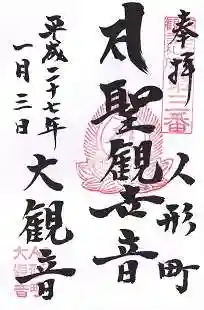 奉拝
人形町
聖観世音
平成二十七年
一月三日
大観音
三番
人形町
大観音